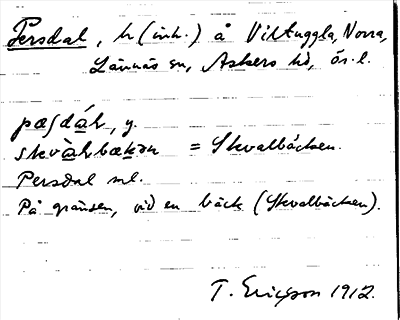 Persdal, h (inh.) å Viltuggla, Norra,
Lännäs sn, Askers hd, ör. l.
pæʃdáɫ, y.
skvàɫbækən = Skvalbäcken.
Persdal ml.
På gränsen, vid en bäck (Skvalbäcken).
T. Ericson 1912.